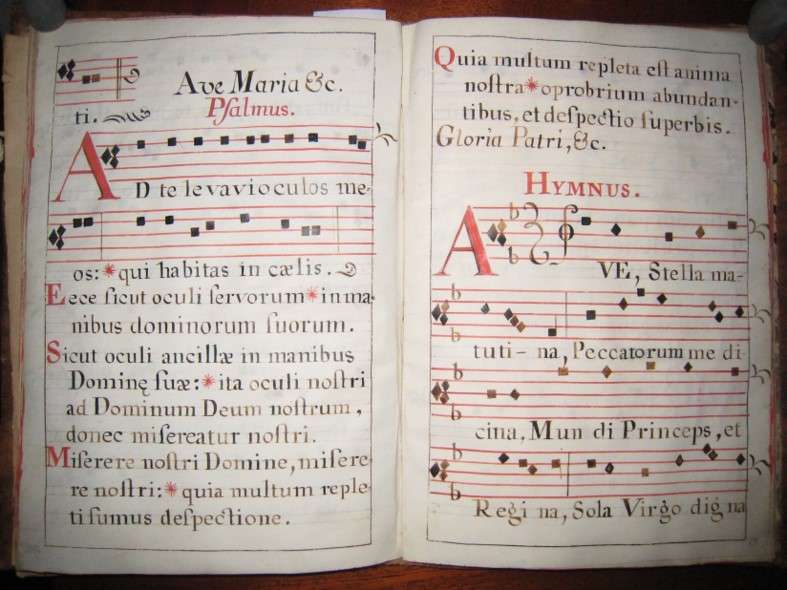 Ave Maria &c.
ti.
Psalmus.
AD te levavi oculos me-
os: * qui habitas in cælis.
Ecce sicut oculi servorum * in ma-
nibus dominorum suorum.
Sicut oculi ancillæ in manibus
Dominę suæ: * ita oculi nostri
ad Dominum Deum nostrum,
donec misereatur nostri.
Miserere nostri Domine, misere-
re nostri: * quia multum reple-
ti sumus despectione.
Quia multum repleta est anima
nostra * oprobrium abundan-
tibus, et despectio superbis.
Gloria Patri, &c.
HYMNUS.
AVE, Stella ma-
tuti-na, Peccatorum me di
cina, Mun di Princeps, et
Regi na, Sola Virgo dig na